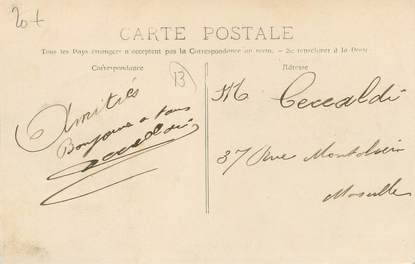 20+
CARTE POSTALE
Tous les Pays étrangers n'acceptent pas la Correspondance au recto. - Se renseigner à la Poste
Correspondance
Adresse
13
Amitiés
Bonjour a tous
Ceccaldi
M Ceccaldi
37 Rue Montolieu
Marseille